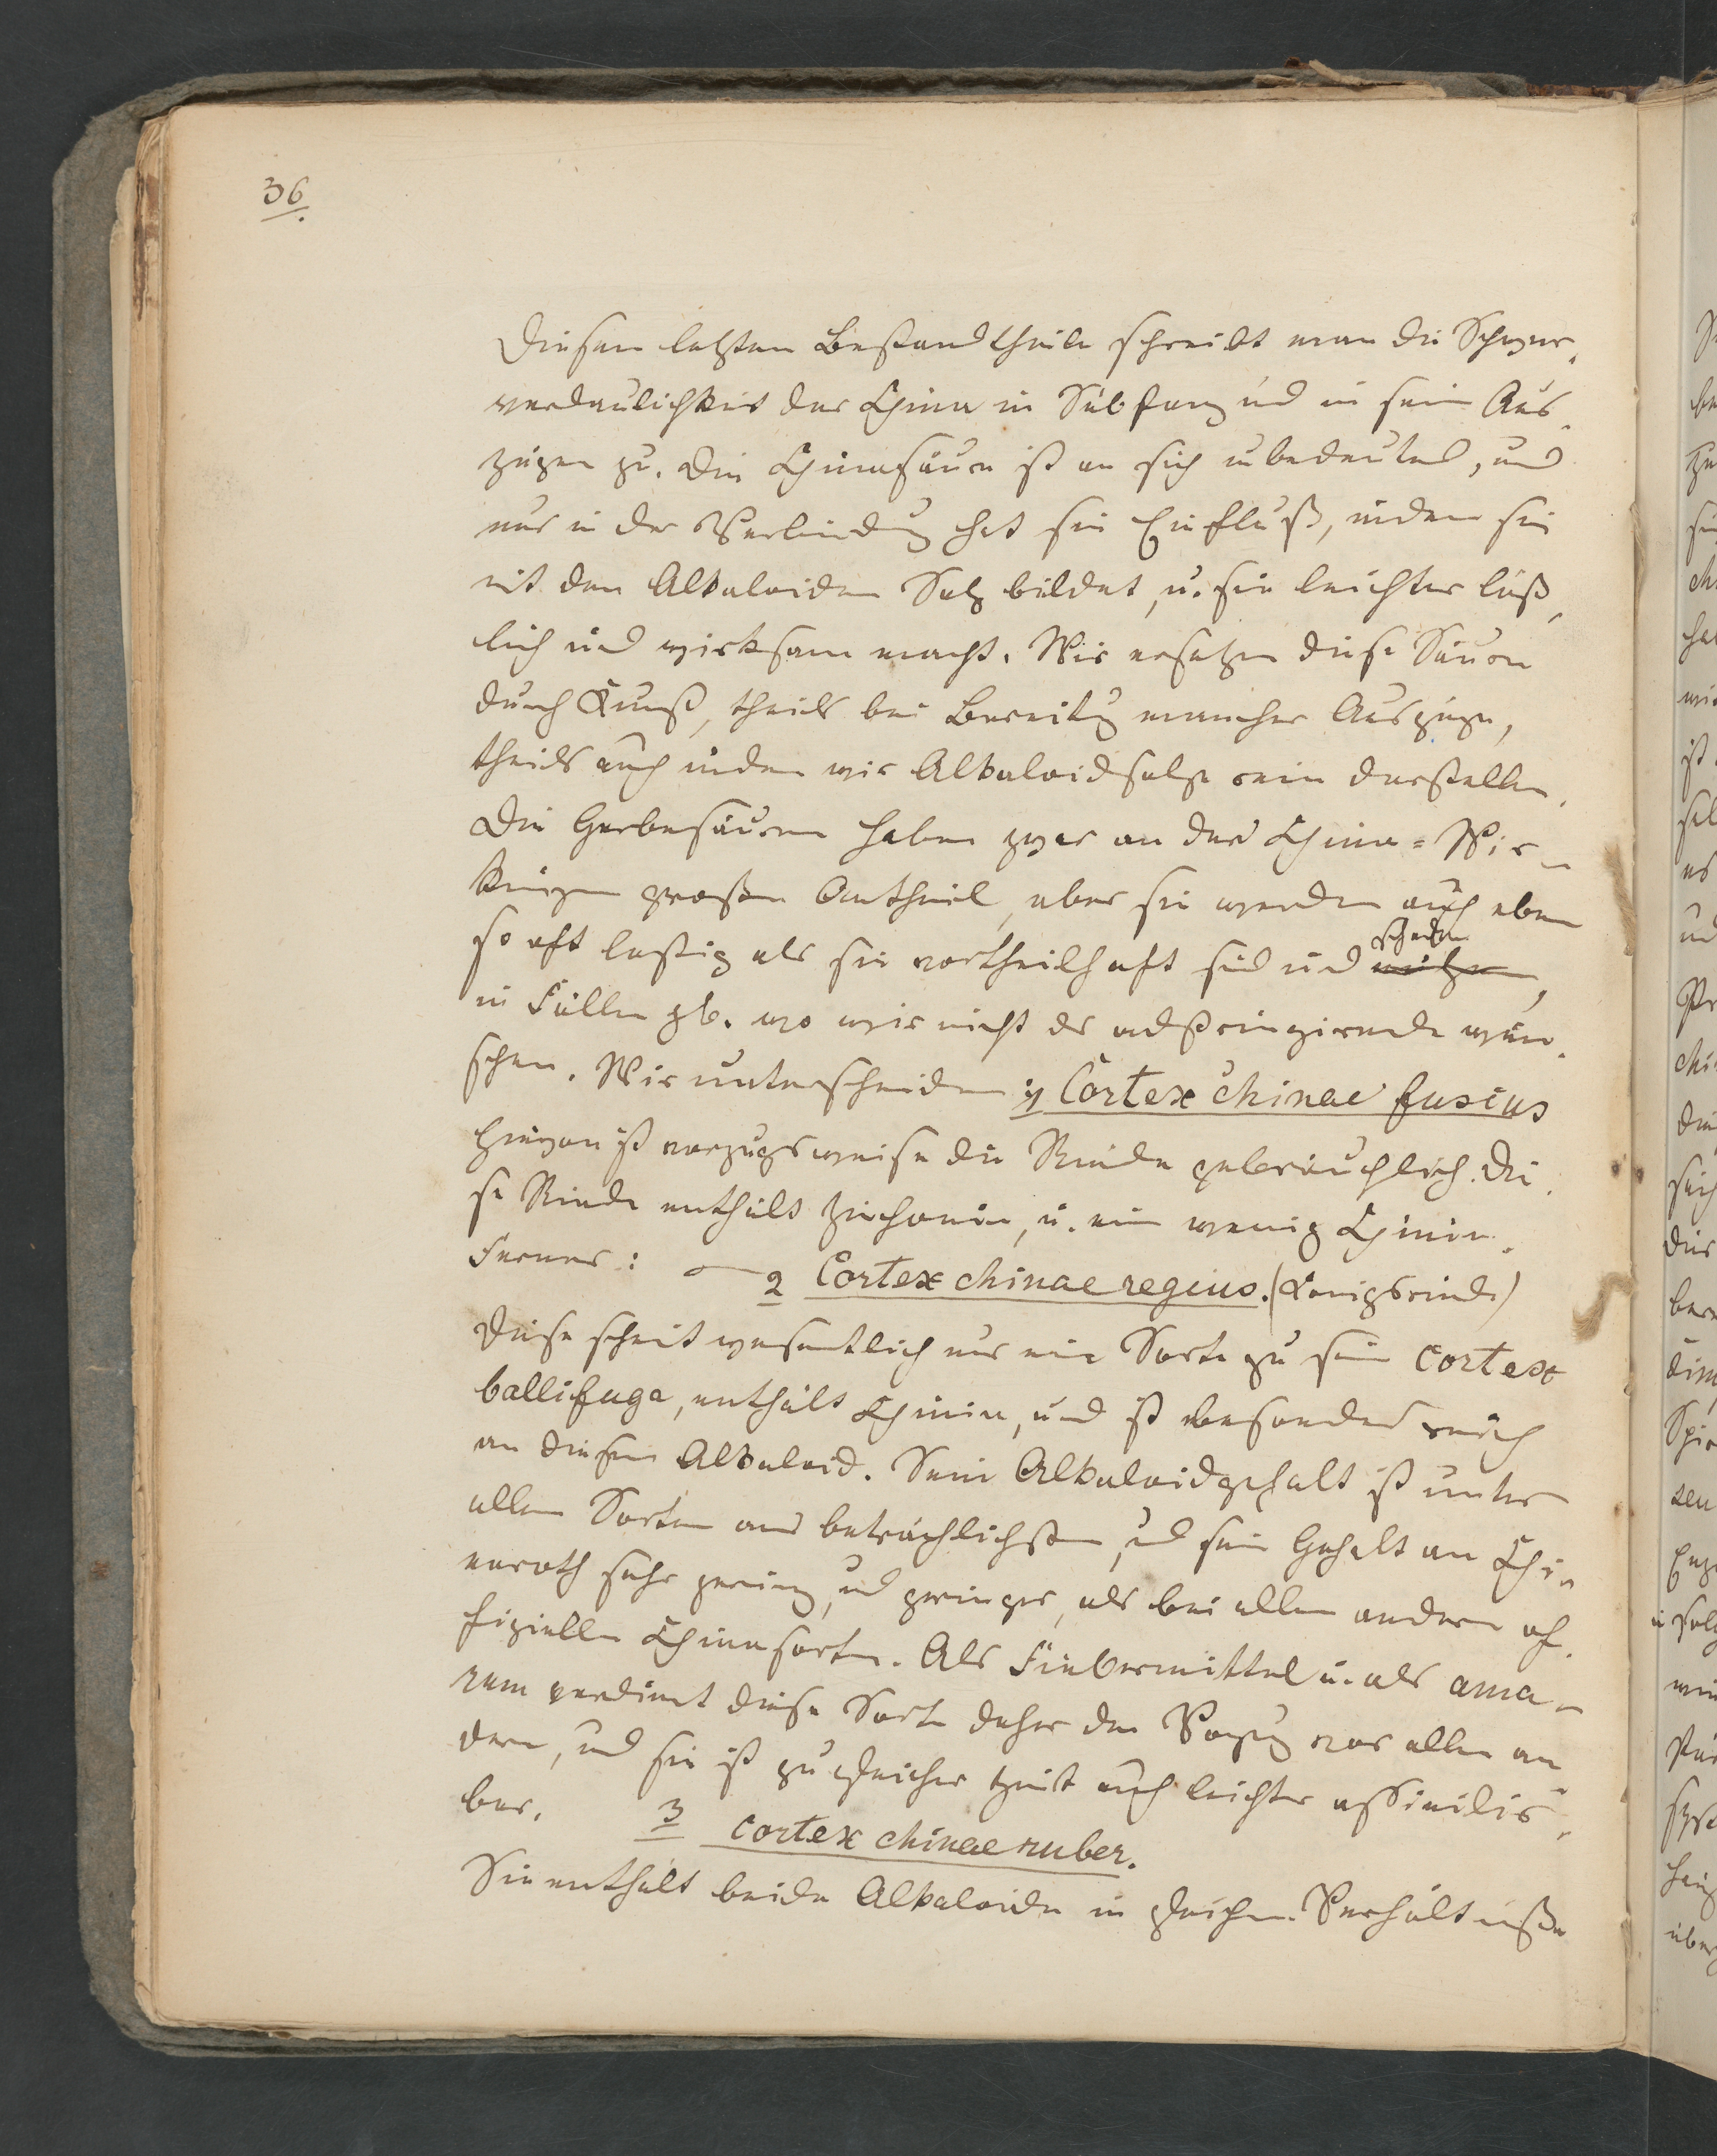 36.
Diesem letzten Bestandtheile schreibt man die Schwer-
verdaulichkeit der China in Substanz und in sein Aus-
zügen zu. Die Chinasäure ist an sich unbedeutend, und
nur in der Verbindung hat sie Einfluß, indem sie
mit den Alkaloiden Salz bildet, u. sie leichter lös-
lich und wirksam macht. Wir ersetzen diese Säure
durch Kunst, theils bei Bereitung mancher Auszüge,
theils auch indem wir Alkaloidsalze rein darstellen.
Die Gerbesäuren haben zwar an der China-Wir-
kungen großen Antheil, aber sie werden auch eben
so oft lästig als sie vortheilhaft sind und schaden nützen,
in Fällen zb. wo wir nicht das adstringirende wün-
schen. Wir unterscheiden 1) Cortex chinae fuscus
hievon ist vorzugsweise die Rinde gebräuchlich. Die-
se Rinde enthält Zinchonin, u. ein wenig Chinin.
Ferner: 2 Cortex chinae regius. (Königsrinde)
Diese scheint wesentlich nur eine Sorte zu sein cortex
ballifuga, enthält Chinin, und ist besonders reich
an diesem Alkaloid. Sein Alkaloidgehalt ist unter
allen Sorten am beträchlichsten, und sein Gehalt an Chi-
naroth sehr gering, und geringer, als bei allen andern of-
fiziellen Chinasorten. Als Fiebermittel u. als ama-
rum verdient diese Sorte daher den Vorzug vor allen an-
dern, und sie ist zu gleicher Zeit auch leichter assimilir-
bar. 3 cortex chinae ruber.
Sie enthält beide Alkaloide in gleichem Verhältniße